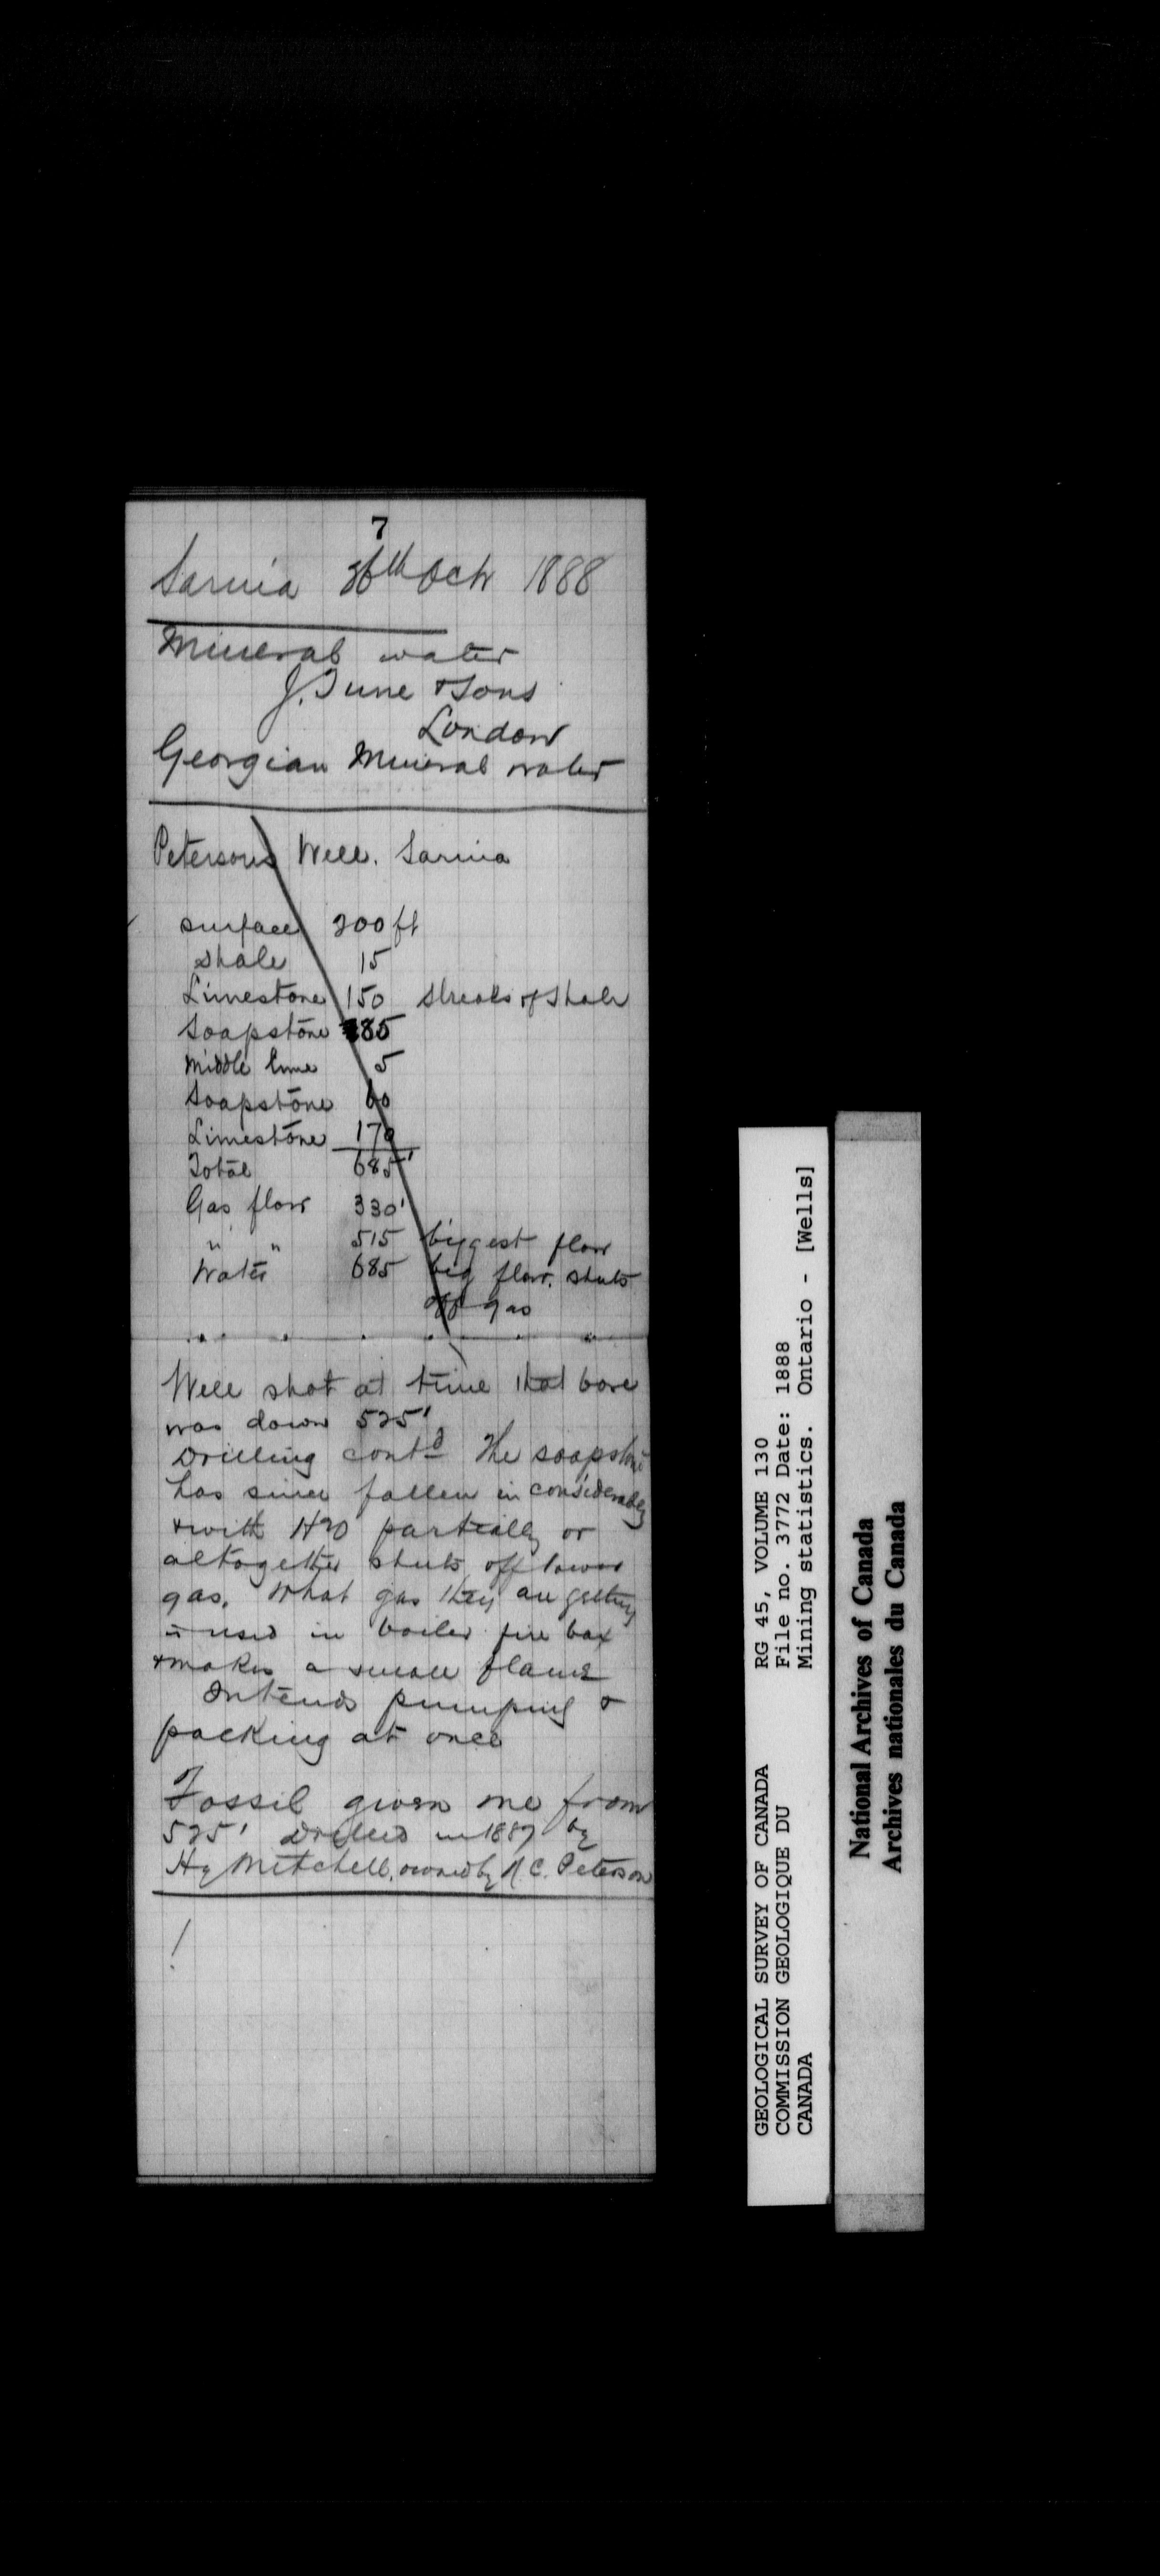 7
Sarnia 26th Oct 1888
Mineral water
J. Tune & Sons
London
Georgian Mineral water
Petersons Well. Sarnia
surface 200 ft
shale 15
Limestone 150 streaks of shale
Soapstone 85
Middle lime 5
Soapstone 60
Limestone 170
Total 685'
Gas flow 330'
" " 515 biggest flow
Water 685 big flow. shuts
off gas
Well shot at time that bore
was down 525'
Drilling contd The soapstone
has since fallen in considerably
& with H2O partially or
altogether shuts off lower
gas. What gas they are getting
is used in boiler fire box
& makes a small flame
Intends pumping &
packing at once
Fossil given me from
525' Drilled in 1887 by
Hy Mitchell, owned by C. Peterson
GEOLOGICAL SURVEY OF CANADA
COMMISSION GEOLOGIQUE DU
CANADA
RG 45, VOLUME 130
File no. 3772 Date: 1888
Mining statistics. Ontario - [Wells]
National Archives of Canada
Archives nationales du Canada